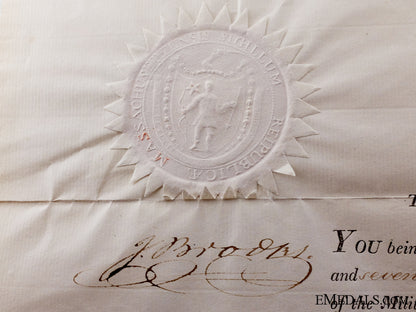 MASSACHUSE SIGILLUM REIPUBLICÆ
J. Brooks.
T
YOU bein
and seven
of the Mili
EMEDALS.COM